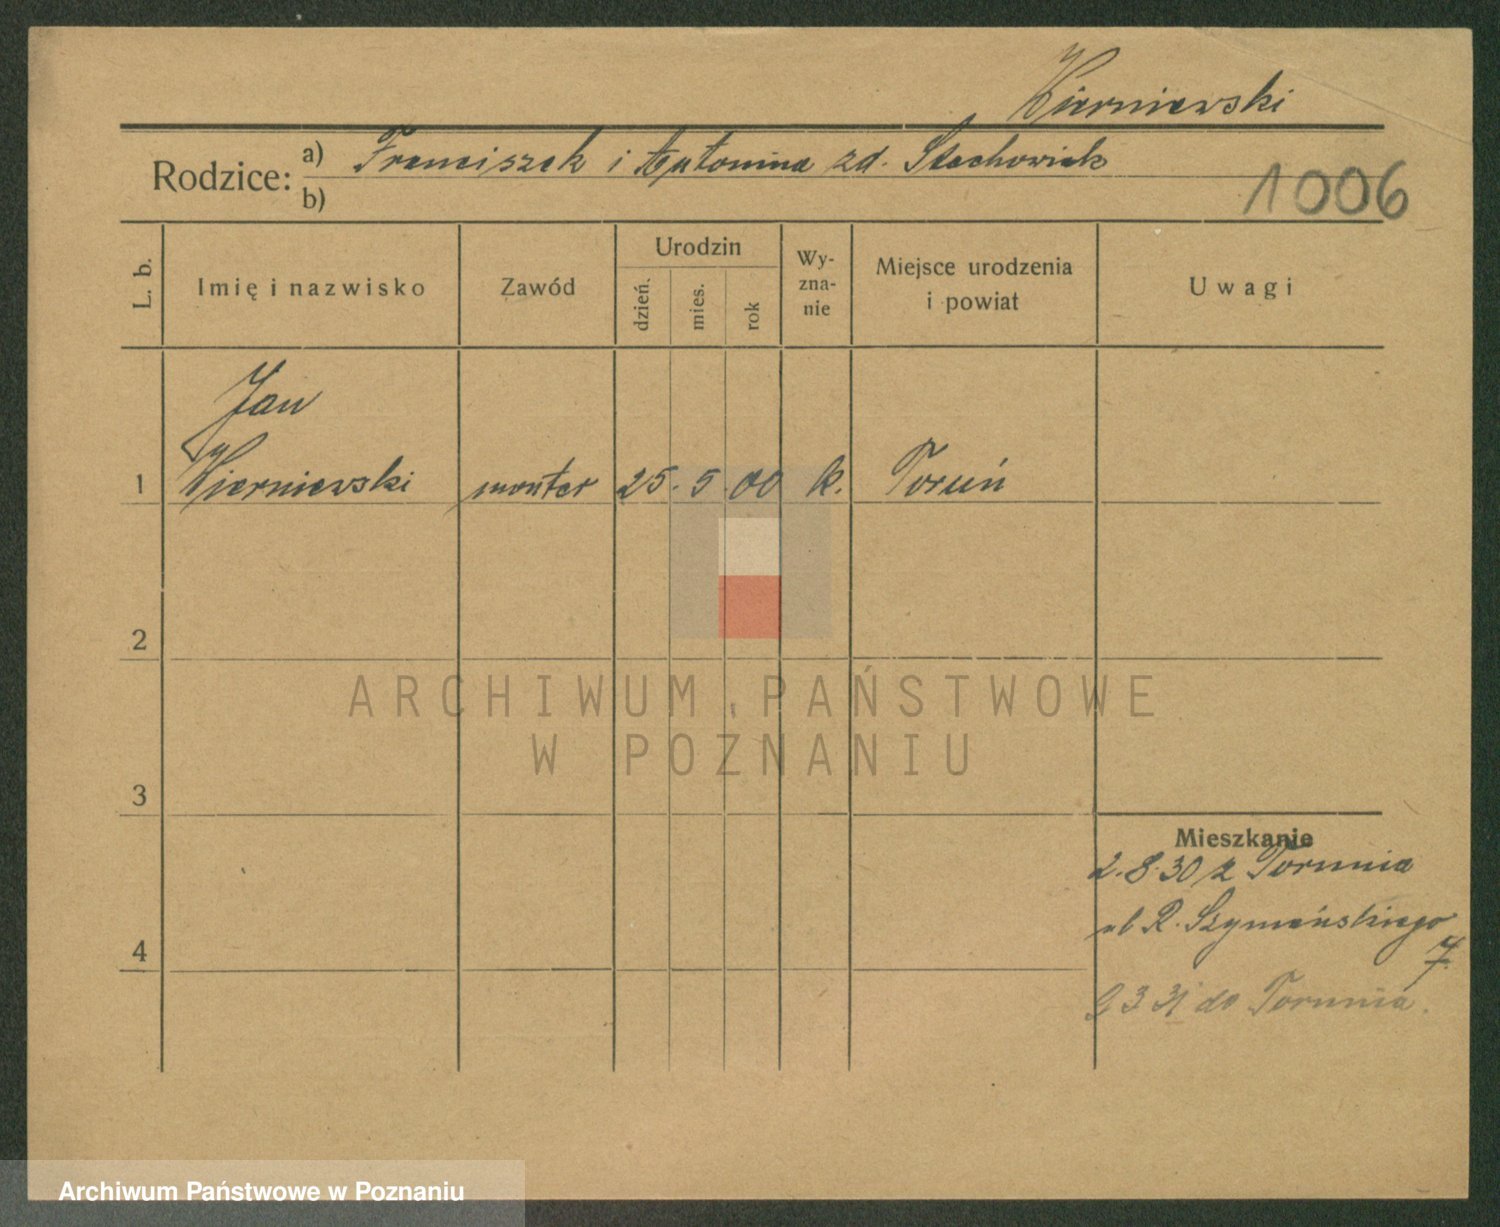 Wierniewski
Rodzice: a) Franciszek i Antonina zd. Stachowiak
b)
1006
L. b.
Imię i nazwisko
Zawód
Urodzin
dzień.
mies.
rok
Wy-
zna-
nie
Miejsce urodzenia
i powiat
Uwagi
Jan
1 Wierniewski monter 25. 5. 00 k. Toruń
2
ARCHIWUM PAŃSTWOWE
W POZNANIU
3
Mieszkanie
2.8.30 z Torunia
ul R. Szymańskiego
7.
4
3 31 do Torunia.
Archiwum Państwowe w Poznaniu